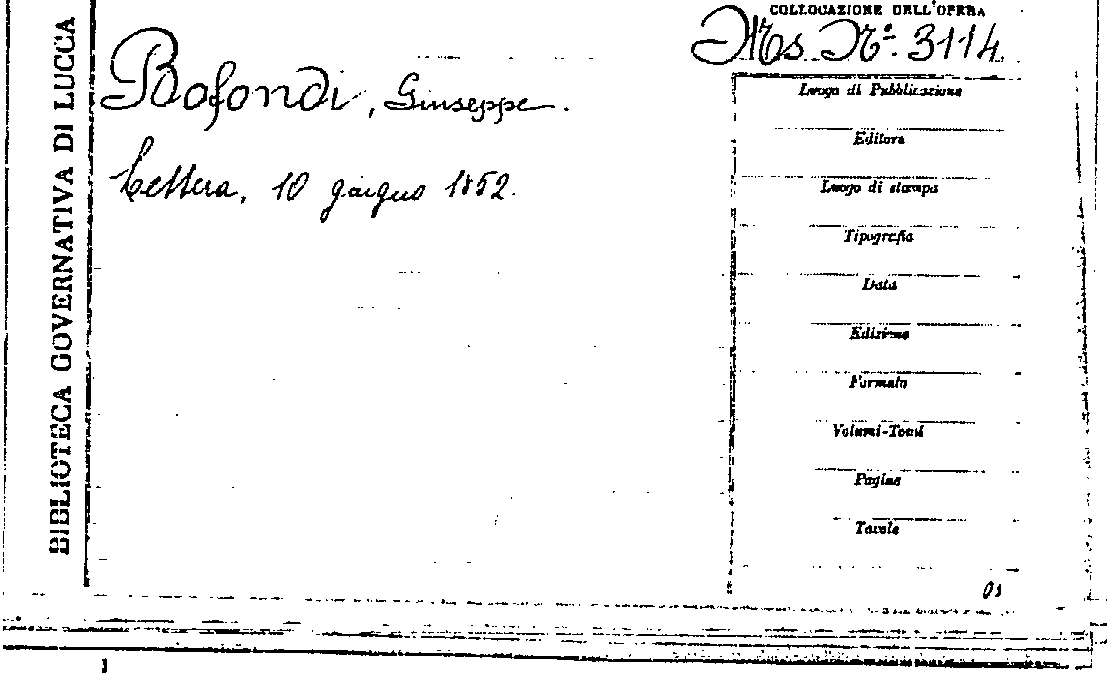 COLLOCAZIONE DELL'OPERA
Ms. Nº. 3114
BIBLIOTECA GOVERNATIVA DI LUCCA
Bofondi, Giuseppe.
Lettera, 10 giugno 1852.
Luogo di Pubblicazione
Editore
Luogo di stampa
Tipografia
Data
Edizione
Formato
Volumi-Tomi
Pagine
Tavole